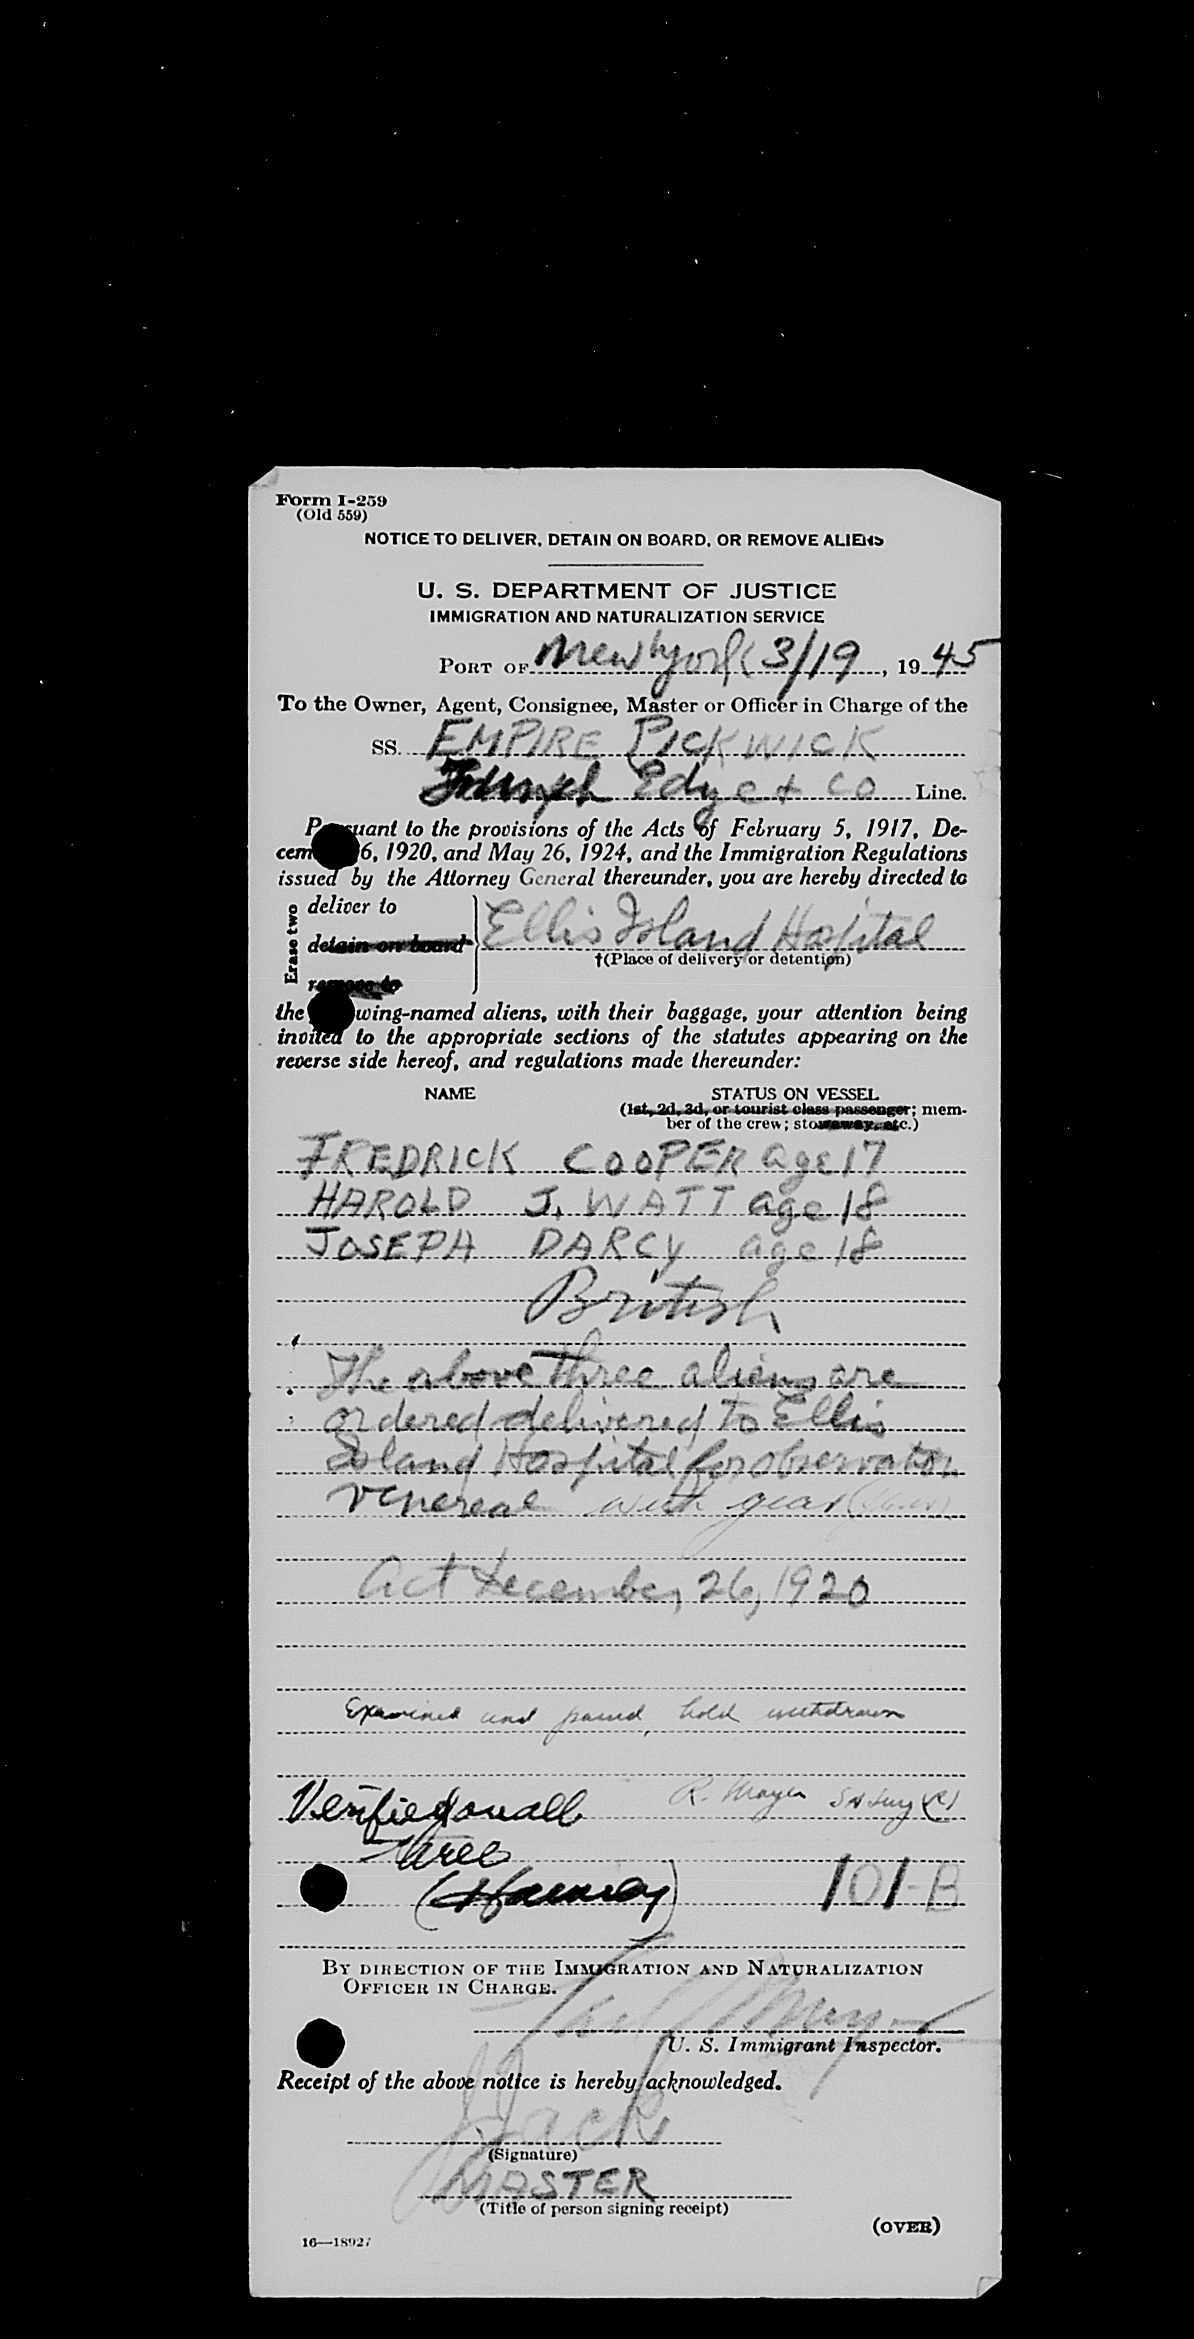 Form I-259
(Old 559)
NOTICE TO DELIVER, DETAIN ON BOARD, OR REMOVE ALIENS
U. S. DEPARTMENT OF JUSTICE
IMMIGRATION AND NATURALIZATION SERVICE
PORT OF New York 3/19, 1945
To the Owner, Agent, Consignee, Master or Officer in Charge of the
SS. EMPIRE PICKWICK
Edye & Co Line.
Pursuant to the provisions of the Acts of February 5, 1917, De-
cem 6, 1920, and May 26, 1924, and the Immigration Regulations
issued by the Attorney General thereunder, you are hereby directed to
Erase two
deliver to
detain on board
remove to
Ellis Island Hospital
†(Place of delivery or detention)
the wing-named aliens, with their baggage, your attention being
invited to the appropriate sections of the statutes appearing on the
reverse side hereof, and regulations made thereunder:
NAME STATUS ON VESSEL
(1st, 2d, 3d, or tourist class passenger; mem-
ber of the crew; stowaway, etc.)
FREDRICK COOPER age 17
HAROLD J. WATT age 18
JOSEPH DARCY age 18
British
The above three aliens are
ordered delivered to Ellis
Island Hospital for observation
venereal with gear
Act December, 26, 1920
Examined and passed, hold withdrawn
R. Mayer
Verified on all
three
101-B
BY DIRECTION OF THE IMMIGRATION AND NATURALIZATION
OFFICER IN CHARGE.
U. S. Immigrant Inspector.
Receipt of the above notice is hereby acknowledged.
Jack
(Signature)
MASTER
(Title of person signing receipt)
(OVER)
16—18927